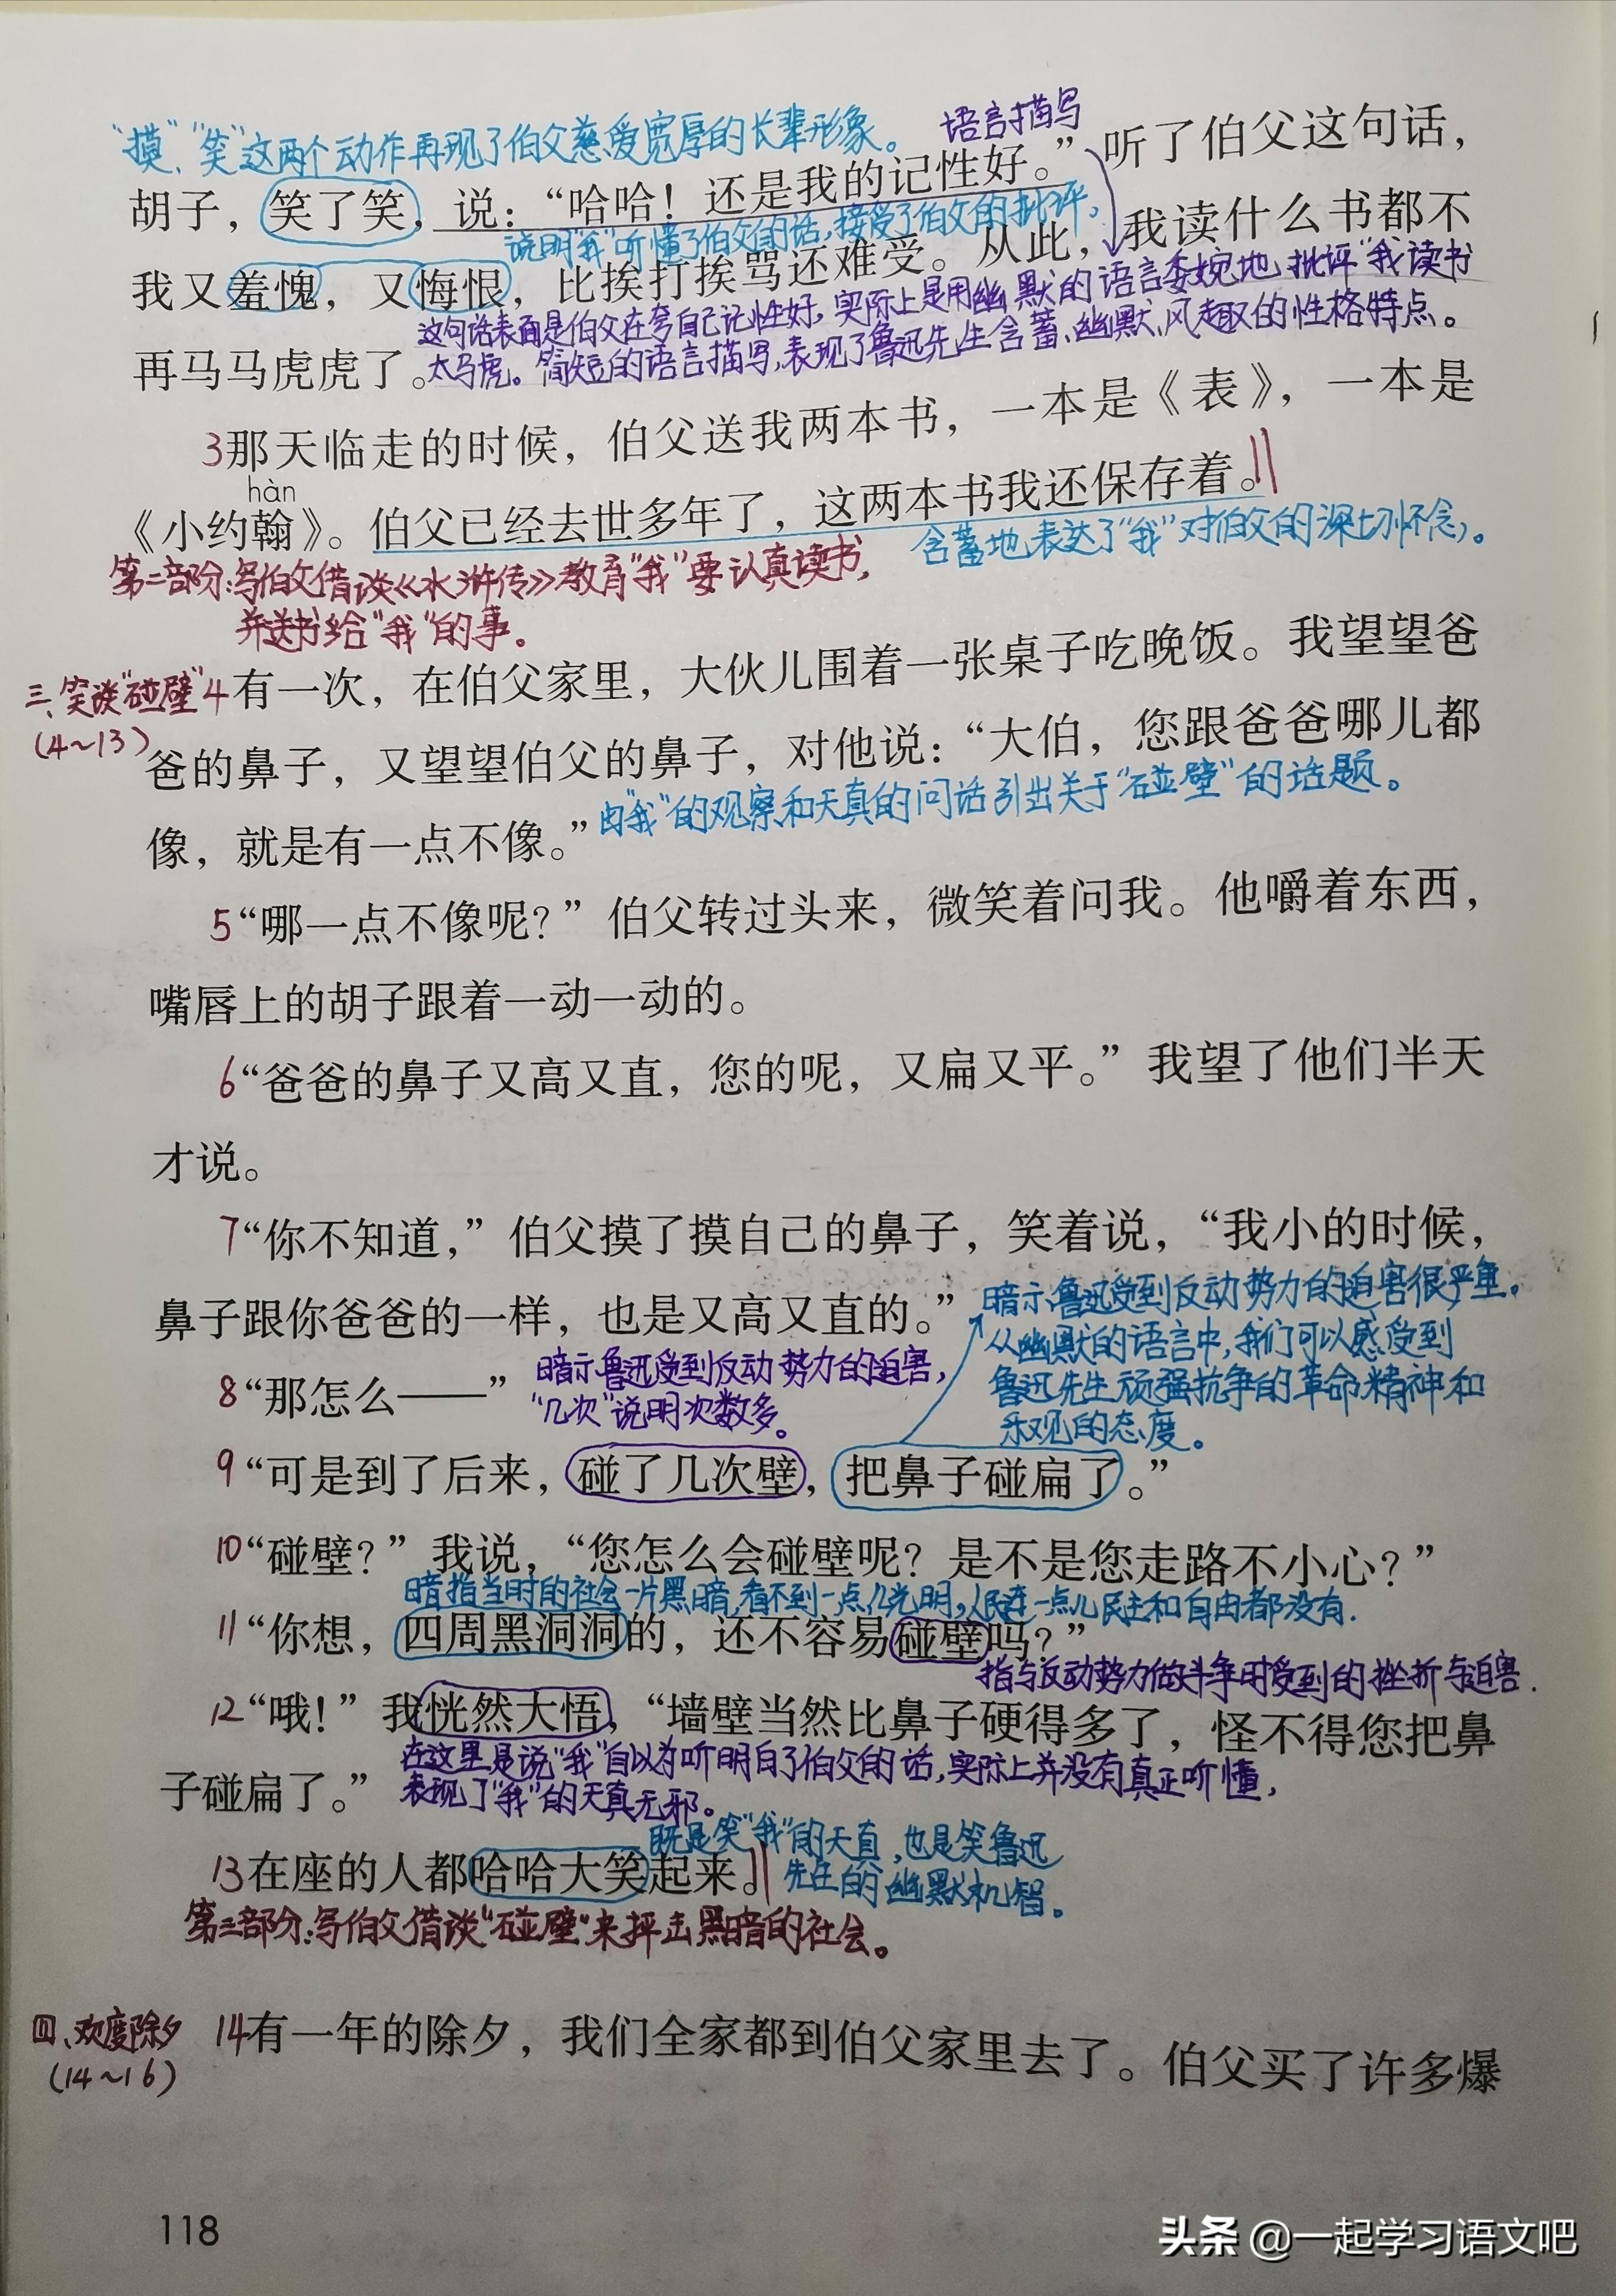 “摸”、“笑”这两个动作再现了伯父慈爱宽厚的长辈形象。
语言描写
胡子，笑了笑，说：“哈哈！还是我的记性好。”听了伯父这句话，
说明“我”听懂了伯父的话，接受了伯父的批评，
我又羞愧，又悔恨，比挨打挨骂还难受。从此，我读什么书都不
这句话表面是伯父在夸自己记性好，实际上是用幽默的语言委婉地批评“我读书
再马马虎虎了。
太马虎。简短的语言描写，表现了鲁迅先生含蓄、幽默、风趣的性格特点。
3那天临走的时候，伯父送我两本书，一本是《表》，一本是
hàn
《小约翰》。伯父已经去世多年了，这两本书我还保存着。
含蓄地表达了“我”对伯父的深切怀念。
第二部分：写伯父借谈《水浒传》教育“我”要认真读书，
并送书给“我”的事。
三、笑谈“碰壁”
(4~13)
4有一次，在伯父家里，大伙儿围着一张桌子吃晚饭。我望望爸
爸的鼻子，又望望伯父的鼻子，对他说：“大伯，您跟爸爸哪儿都
像，就是有一点不像。”
由“我”的观察和天真的问话引出关于“碰壁”的话题。
5“哪一点不像呢？”伯父转过头来，微笑着问我。他嚼着东西，
嘴唇上的胡子跟着一动一动的。
6“爸爸的鼻子又高又直，您的呢，又扁又平。”我望了他们半天
才说。
7“你不知道，”伯父摸了摸自己的鼻子，笑着说，“我小的时候，
鼻子跟你爸爸的一样，也是又高又直的。”
暗示鲁迅受到反动势力的迫害很严重。
从幽默的语言中，我们可以感受到
鲁迅先生顽强抗争的革命精神和
乐观的态度。
8“那怎么——”
暗示鲁迅受到反动势力的迫害，
“几次”说明次数多。
9“可是到了后来，碰了几次壁，把鼻子碰扁了。”
10“碰壁？”我说，“您怎么会碰壁呢？是不是您走路不小心？”
暗指当时的社会一片黑暗，看不到一点儿光明，人民连一点儿民主和自由都没有.
11“你想，四周黑洞洞的，还不容易碰壁吗？”
指与反动势力做斗争时受到的挫折与迫害.
12“哦！”我恍然大悟，“墙壁当然比鼻子硬得多了，怪不得您把鼻
在这里是说“我”自以为听明白了伯父的话，实际上并没有真正听懂，
子碰扁了。”
表现了“我”的天真无邪。
既是笑“我”的天真，也是笑鲁迅
先生的幽默机智。
13在座的人都哈哈大笑起来。
第三部分：写伯父借谈“碰壁”来抨击黑暗的社会。
四、欢度除夕
(14~16)
14有一年的除夕，我们全家都到伯父家里去了。伯父买了许多爆
118
头条 @一起学习语文吧